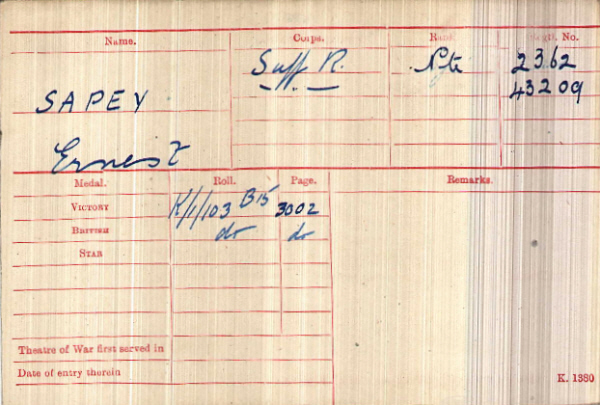 Name. Corps. Rank. Regtl. No.
Suff R. Pte 2362
43209
SAPEY
Ernest
Medal. Roll. Page. Remarks.
VICTORY K/1/103 B15 3002
BRITISH do do
STAR
Theatre of War first served in
Date of entry therein
K. 1380